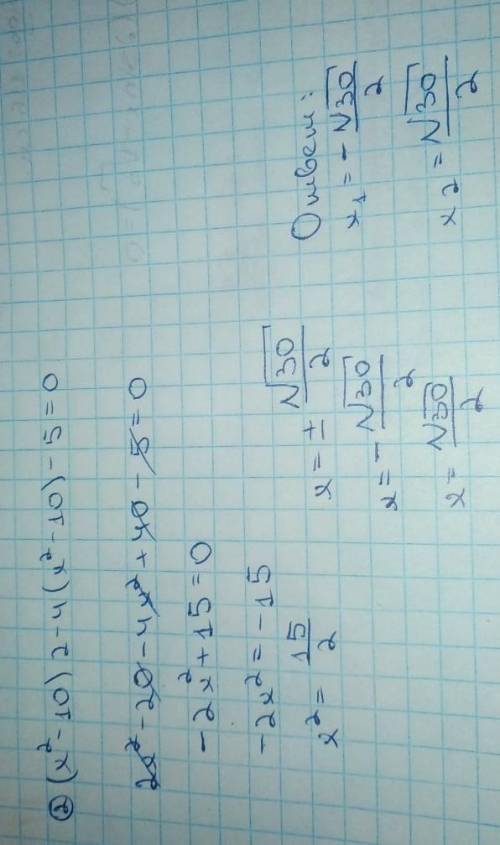 ② (x²-10)2-4(x²-10)-5=0
2x²-20-4x²+40-5=0
-2x²+15=0
-2x²=-15
x²=15/2
x=±√30/2
x=-√30/2
x=√30/2
Ответ:
x₁=-√30/2
x₂=√30/2